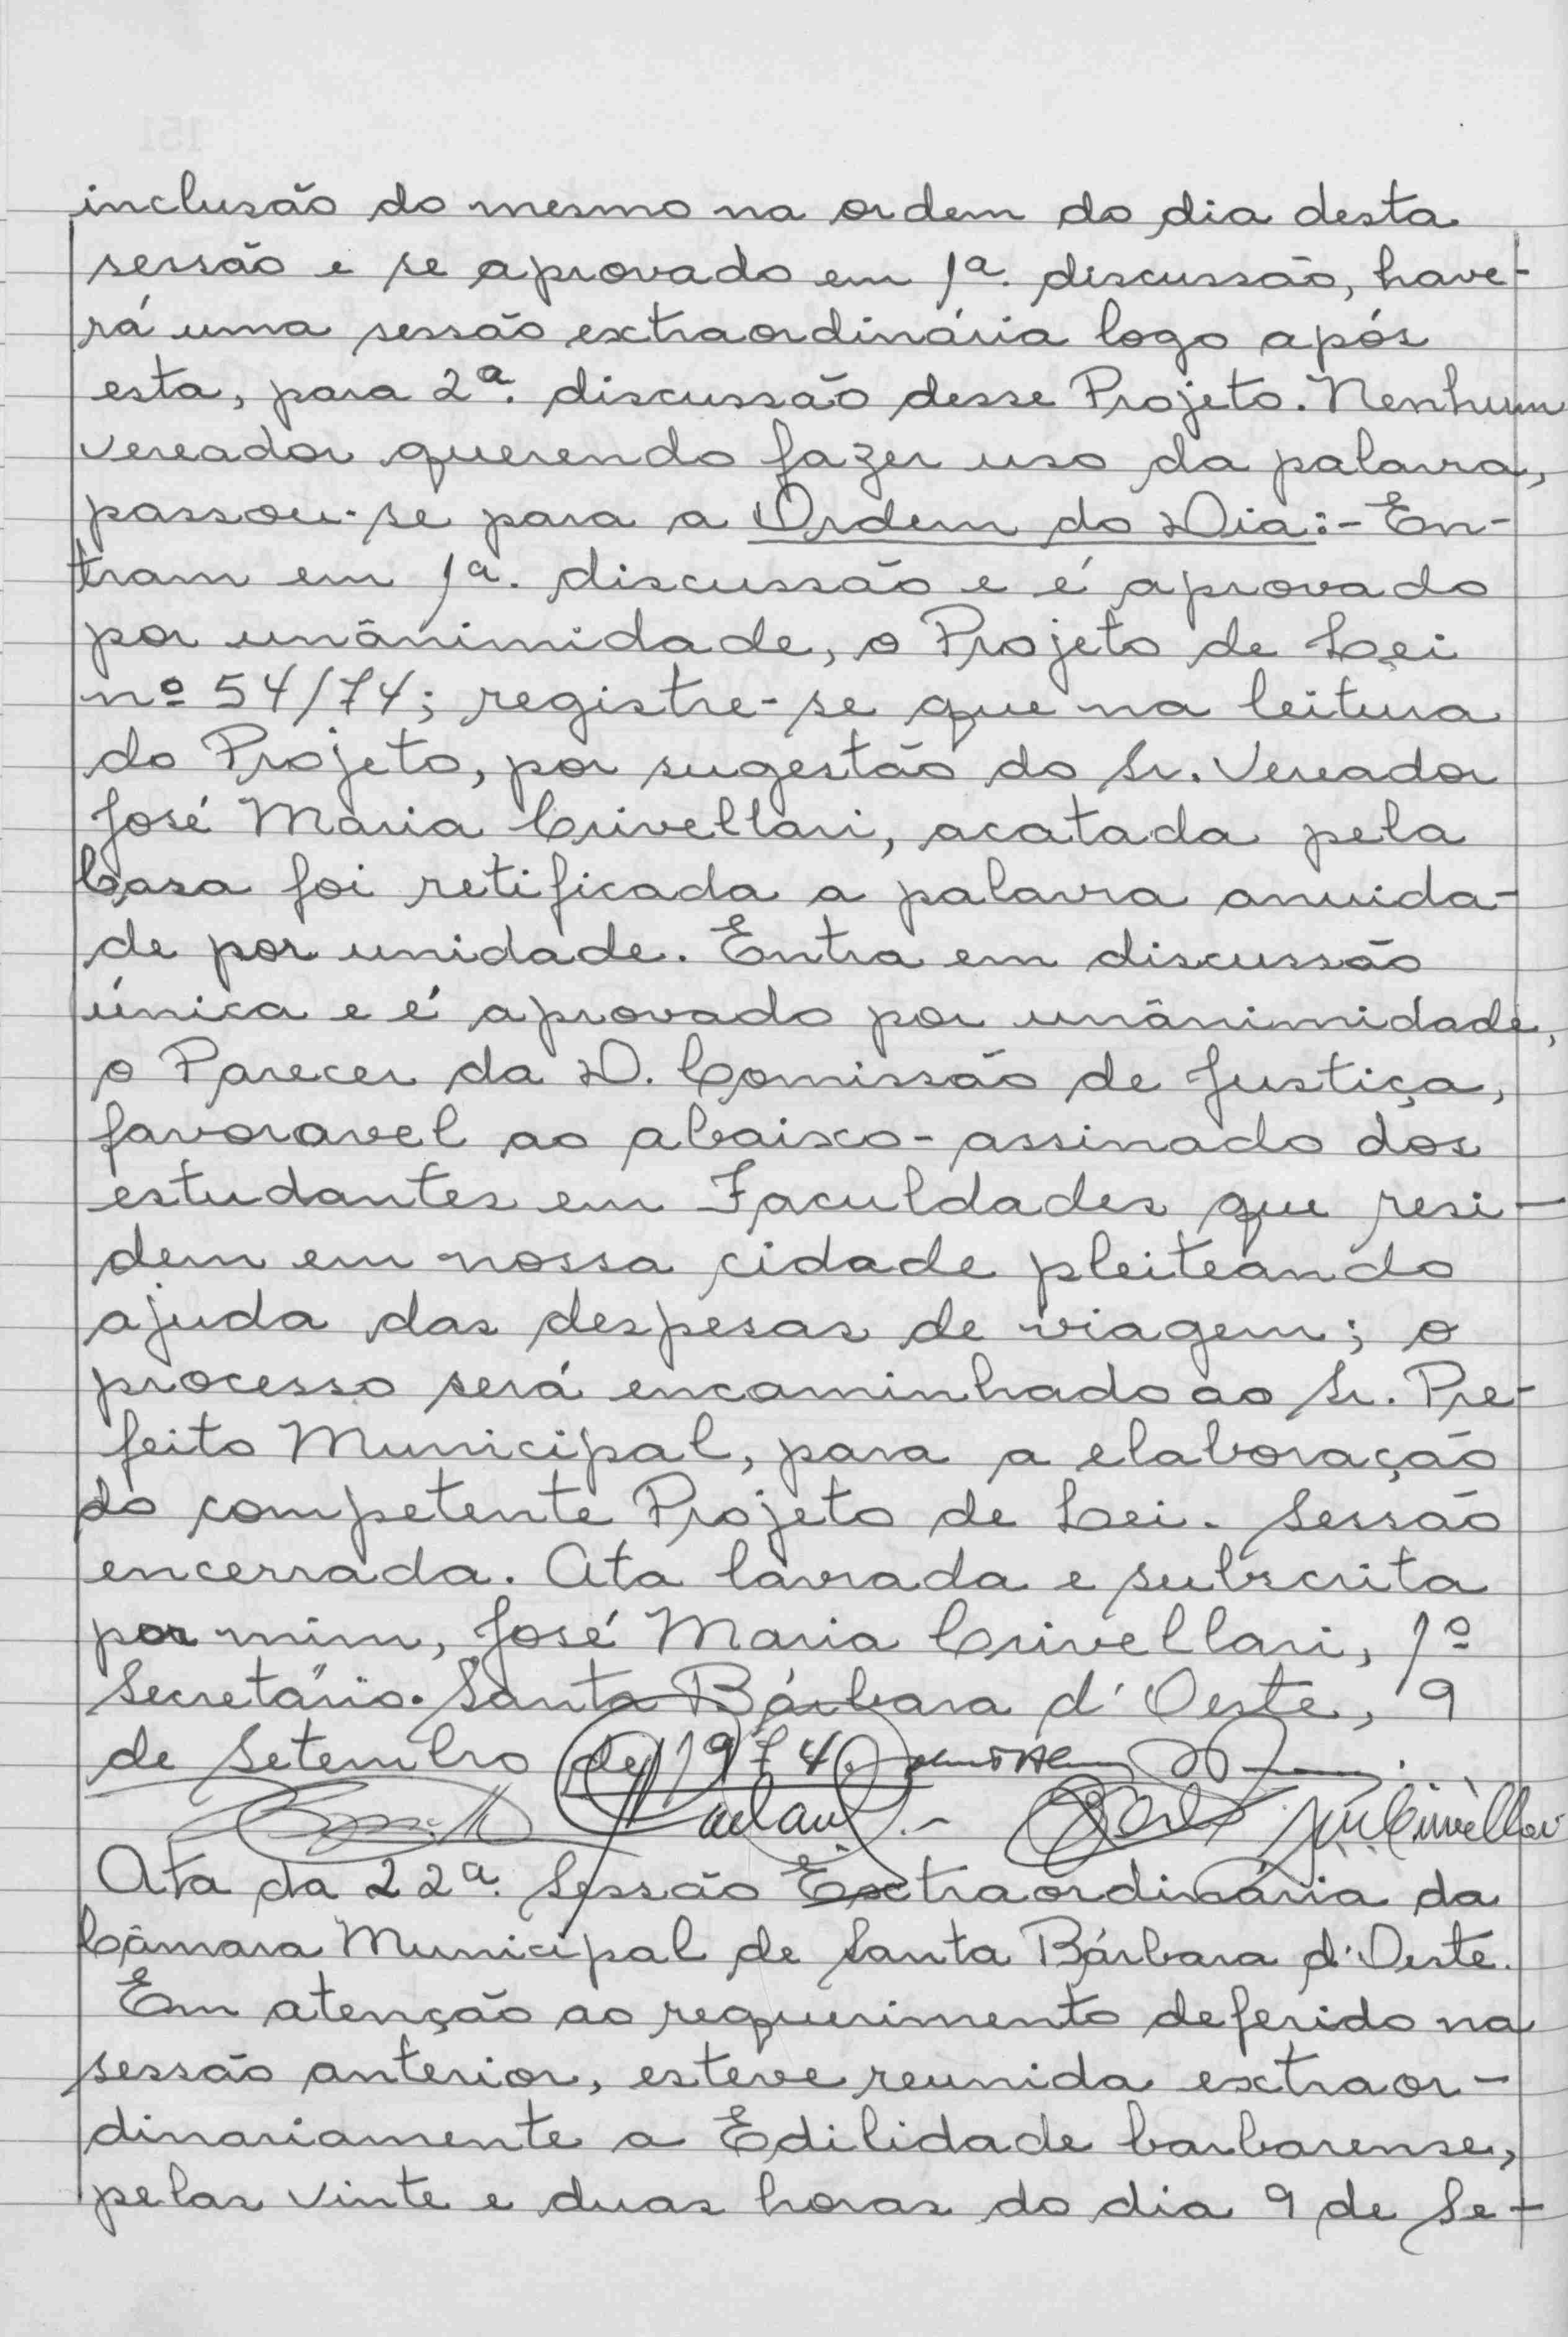 inclusão do mesmo na ordem do dia desta
sessão e se aprovado em 1ª. discussão, have-
rá uma sessão extraordinária logo após
esta, para 2ª. discussão desse Projeto. Nenhum
vereador querendo fazer uso da palavra,
passou-se para a Ordem do Dia:- En-
tram em 1ª. discussão e é aprovado
por unânimidade, o Projeto de Lei
nº 54/74; registre-se que na leitura
do Projeto, por sugestão do Sr. Vereador
José Maria Crivellari, acatada pela
Casa foi retificada a palavra anuida-
de por unidade. Entra em discussão
única e é aprovado por unânimidade,
o Parecer da D. Comissão de Justiça,
favoravel ao abaixo-assinado dos
estudantes em Faculdades que resi-
dem em nossa cidade pleiteando
ajuda das despesas de viagem; o
processo será encaminhado ao Sr. Pre-
feito Municipal, para a elaboração
do competente Projeto de Lei. Sessão
encerrada. Ata lavrada e subscrita
por mim, José Maria Crivellari, 1º
Secretário. Santa Bárbara d'Oeste, 9
de Setembro de 1974.
Crivellari
Ata da 22ª. Sessão Extraordinária da
Câmara Municipal de Santa Bárbara d'Oeste.
Em atenção ao requerimento deferido na
sessão anterior, esteve reunida extraor-
dinariamente a Edilidade barbarense,
pelas vinte e duas horas do dia 9 de Se-